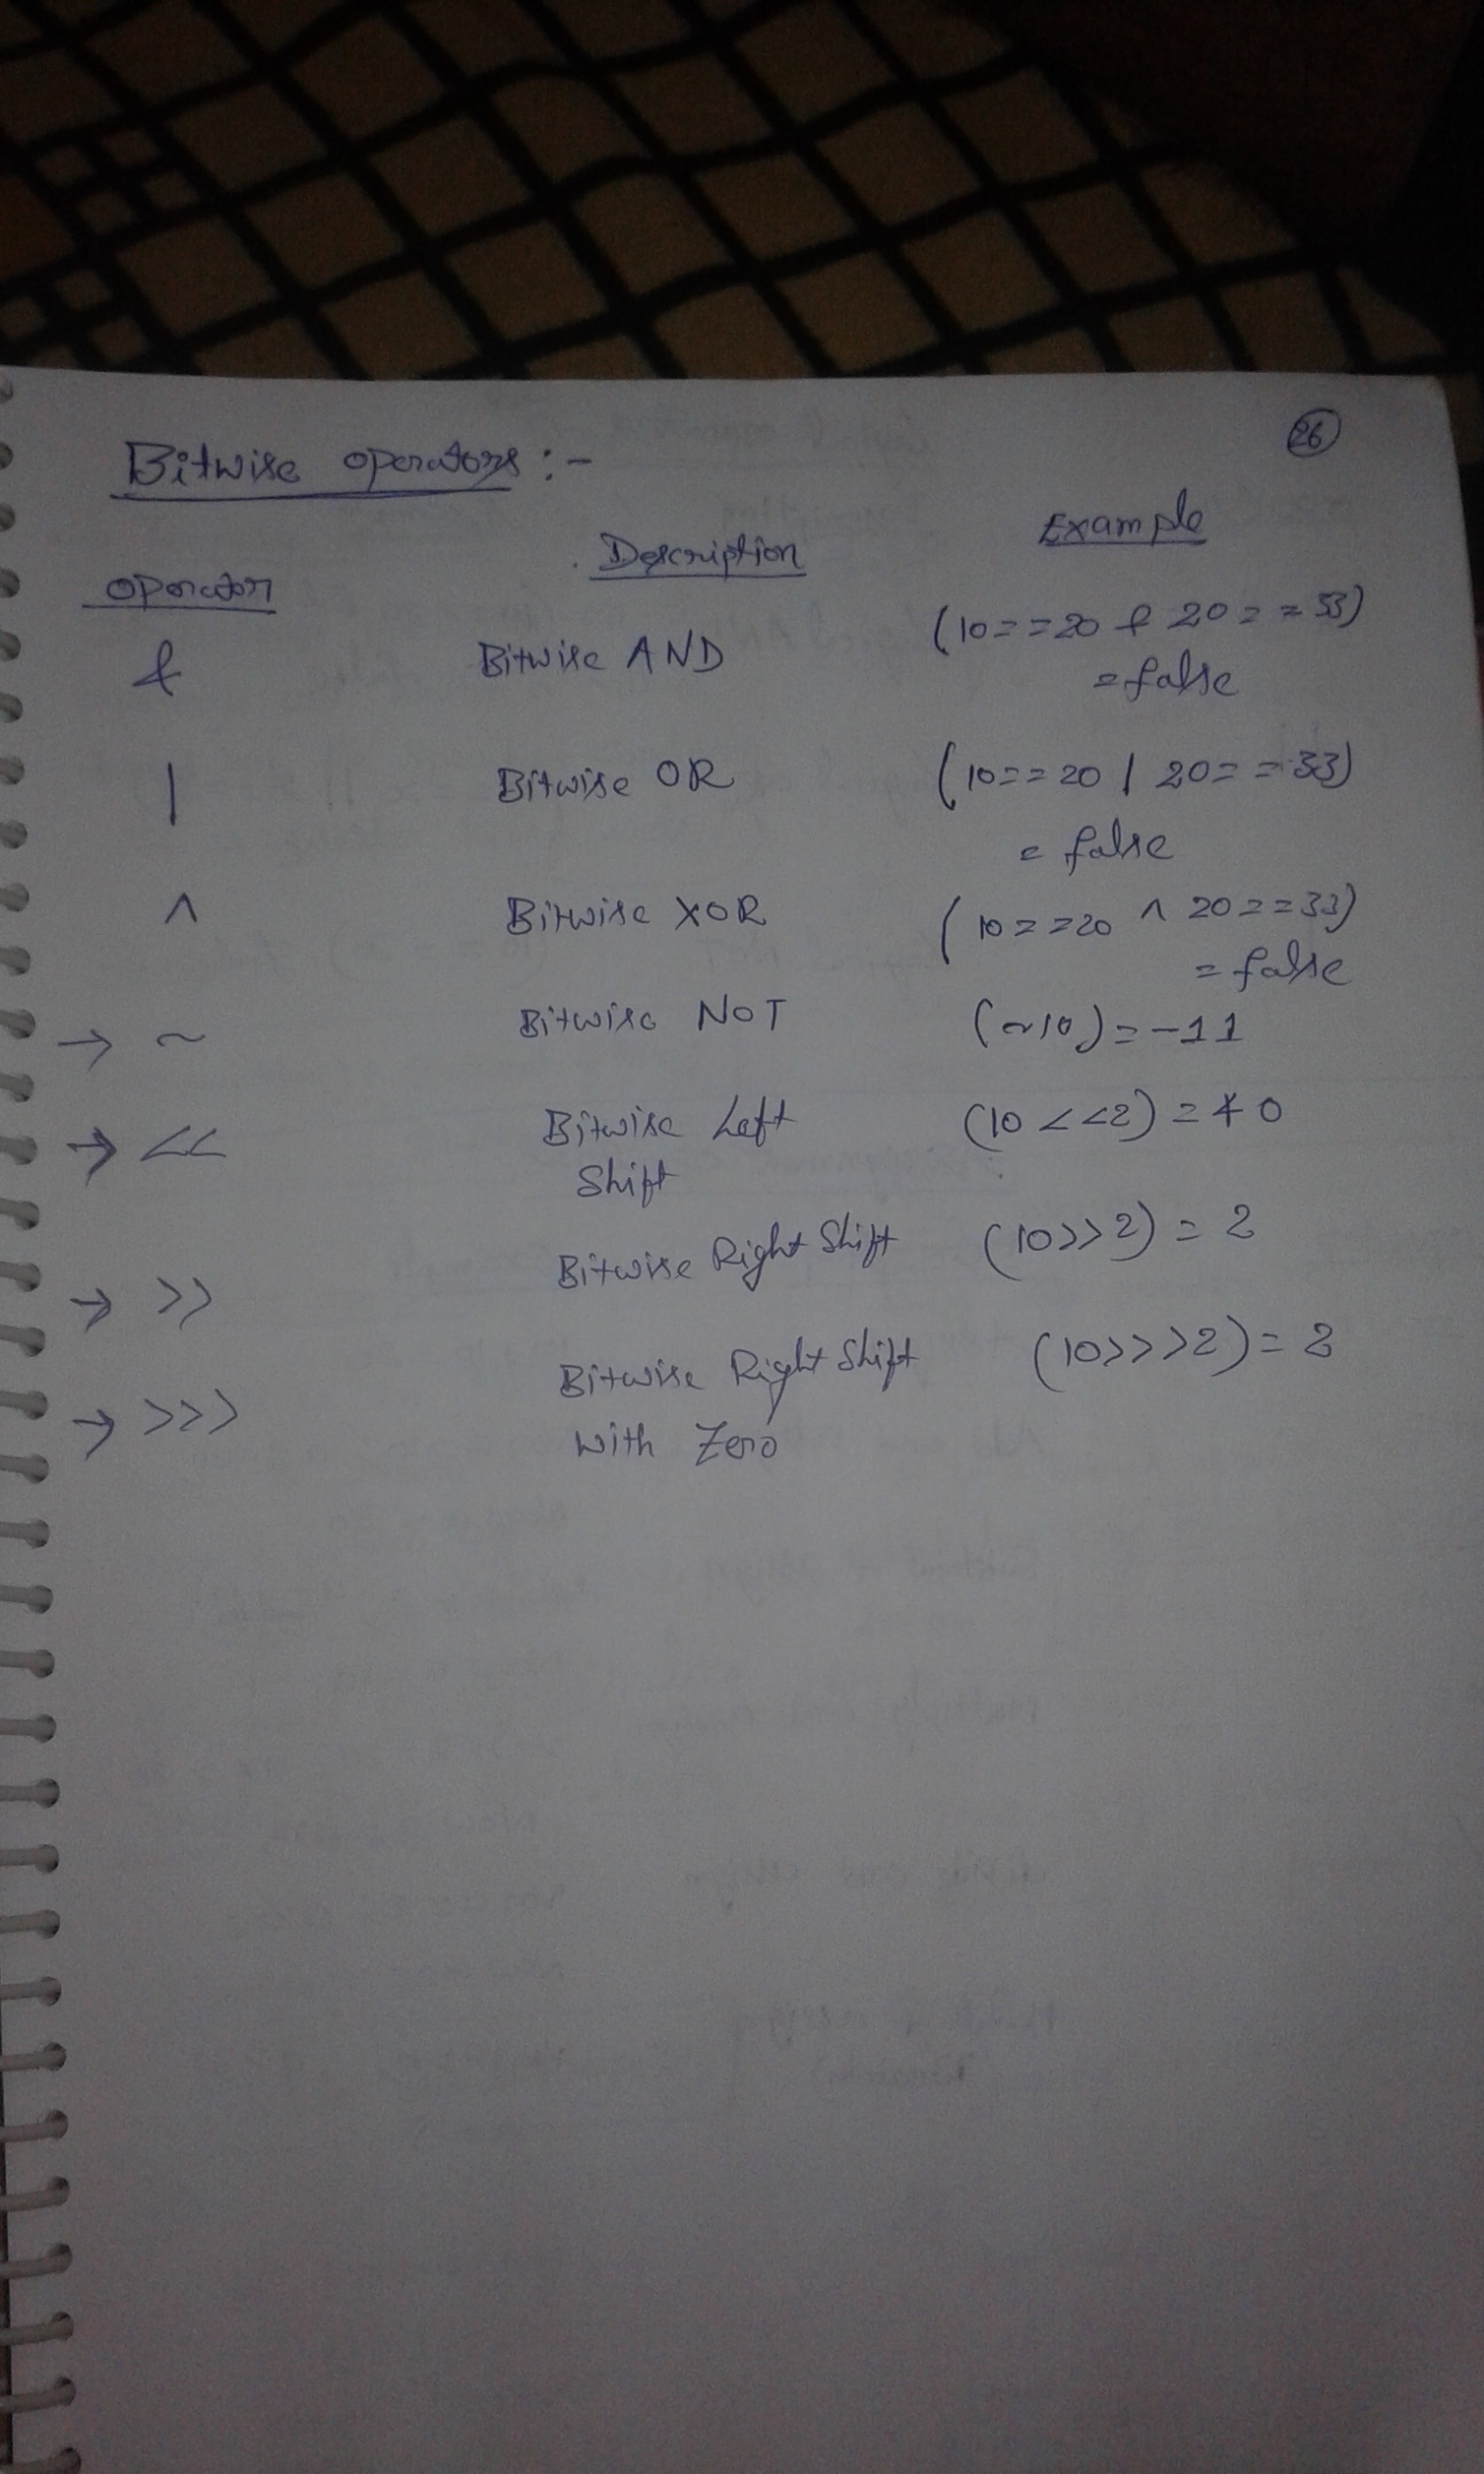 26
Bitwise operators :-
operator Description Example
& Bitwise AND (10==20 & 20==33)
=false
| Bitwise OR (10==20 | 20==33)
= false
^ Bitwise XOR (10==20 ^ 20==33)
= false
→ ~ Bitwise NOT (~10)=-11
→ << Bitwise Left (10<<2)=40
Shift
→ >> Bitwise Right Shift (10>>2) = 2
→ >>> Bitwise Right Shift (10>>>2)= 2
with Zero